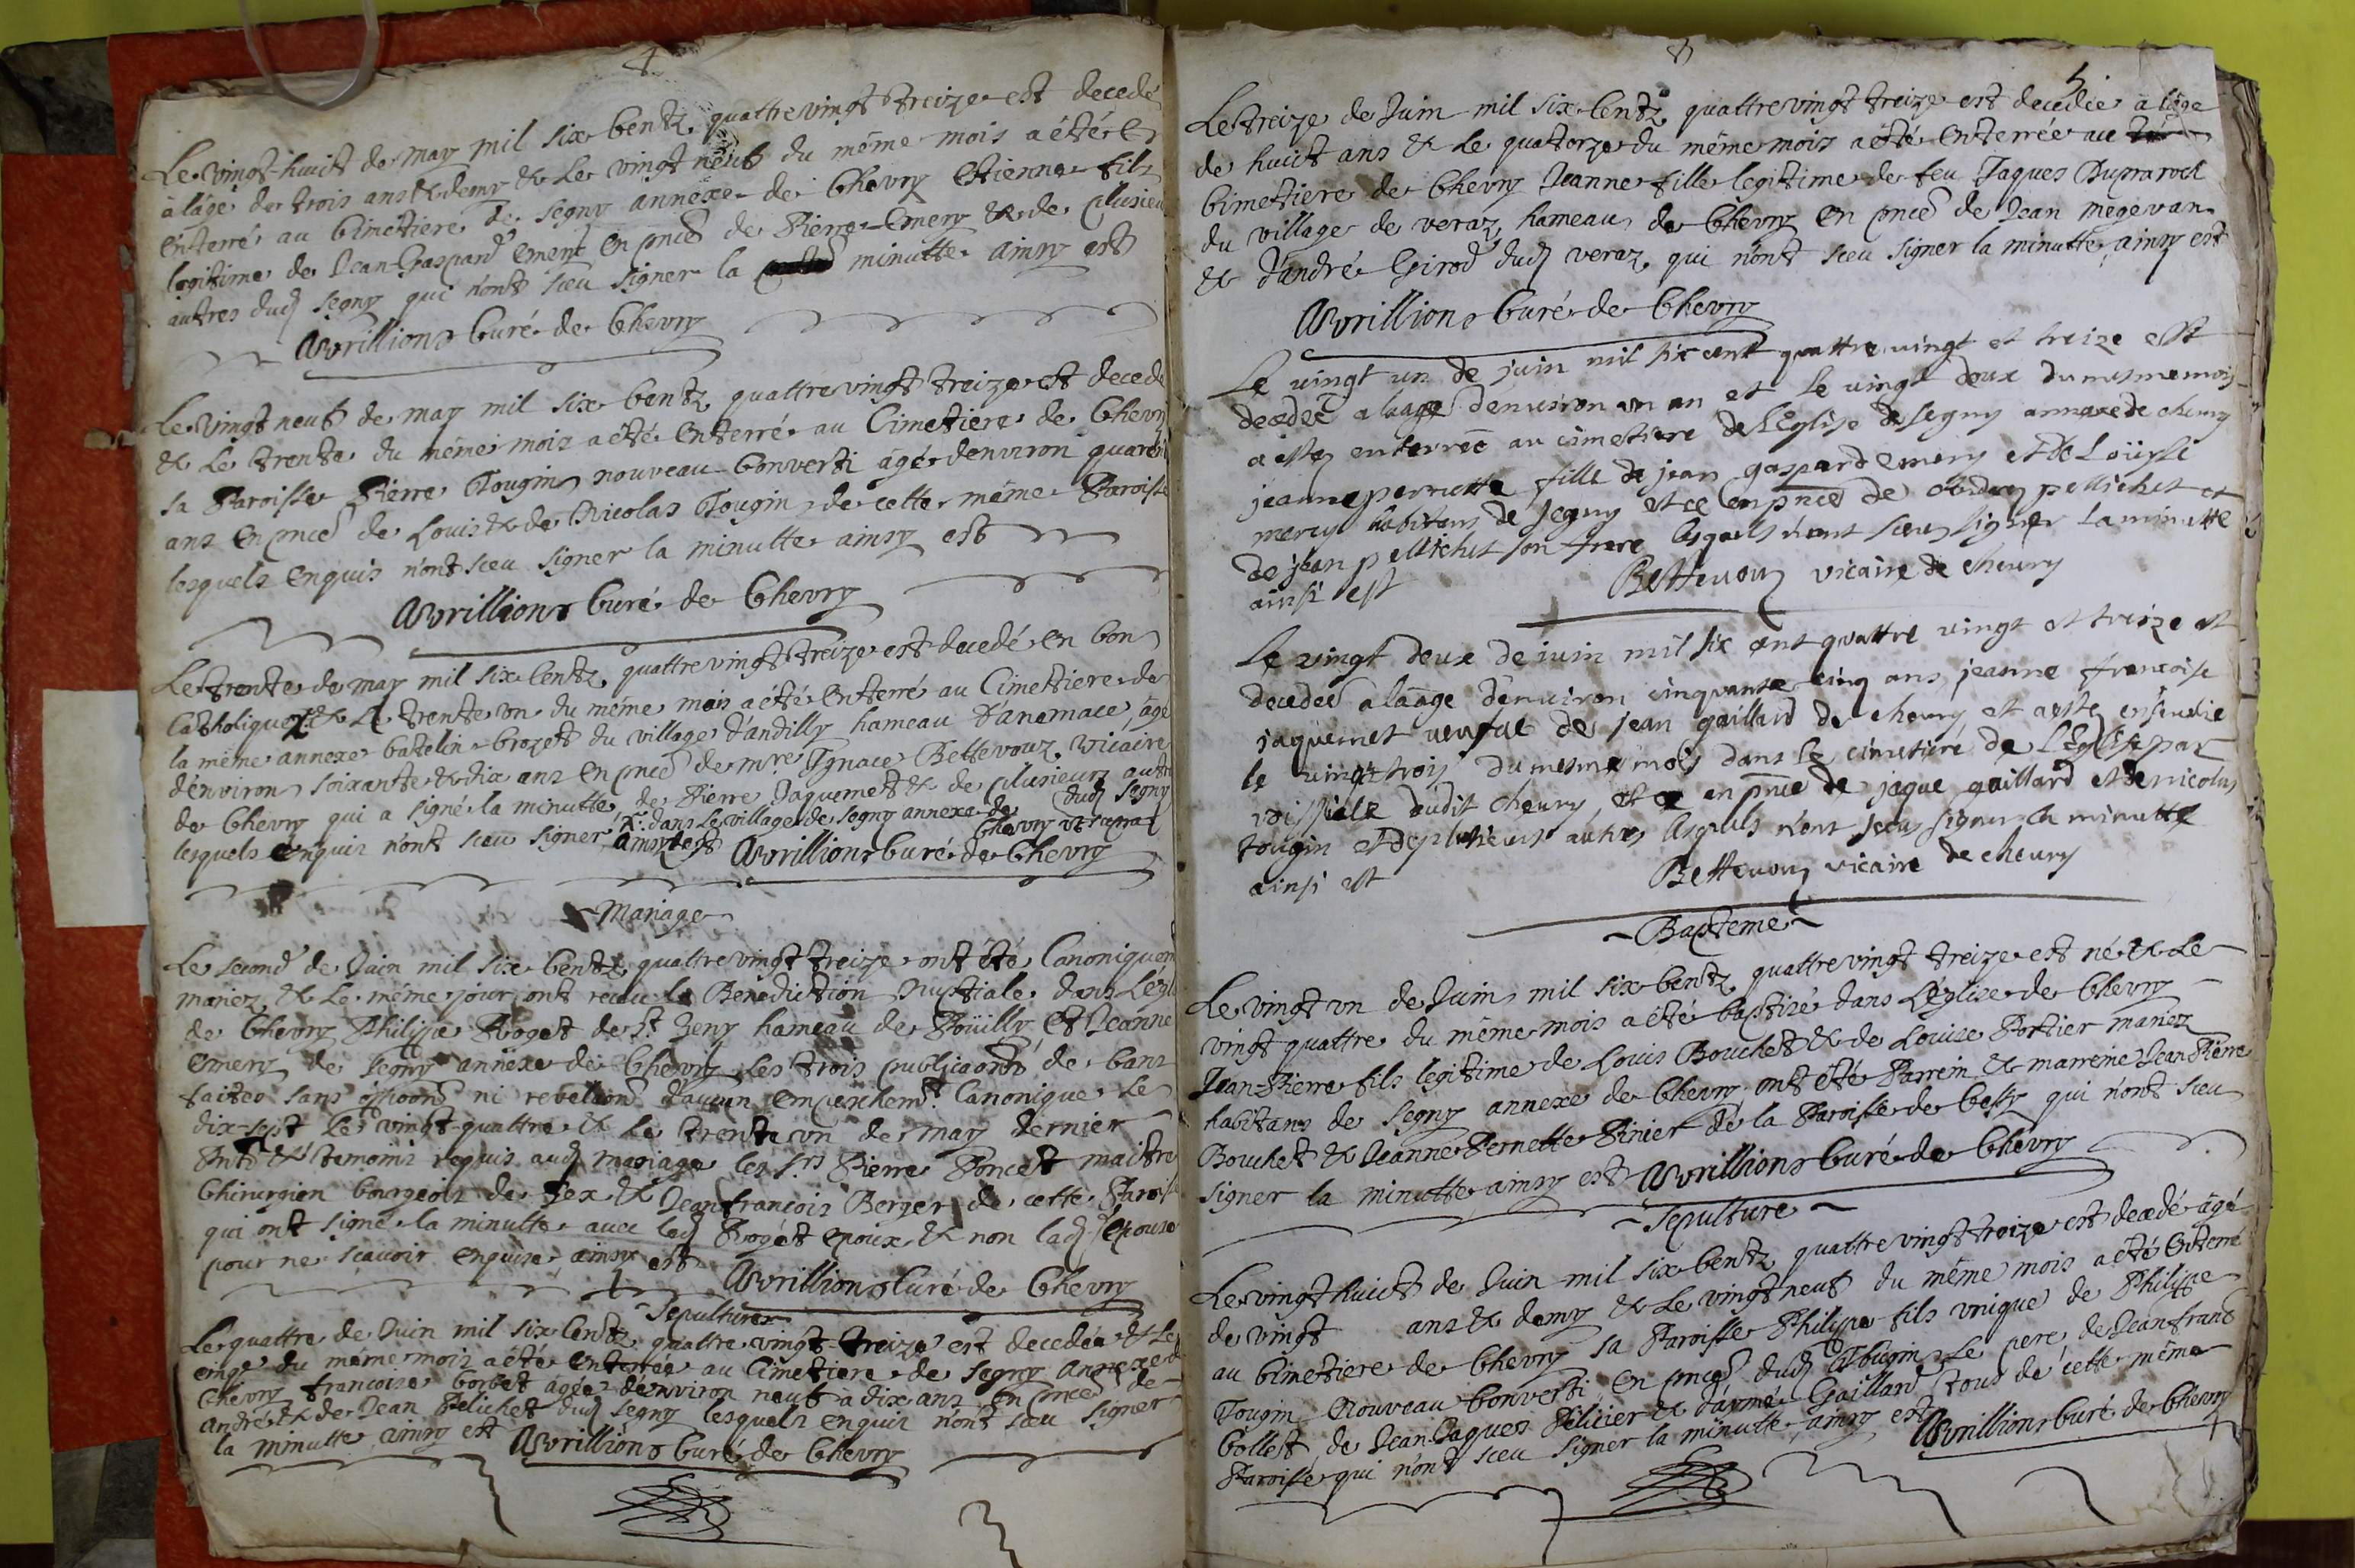 4
Le vingt-huict de may mil six Centz quattrevingt treize est decedé
à l'âge de trois ans & demy & Le vingt neuf du même mois a été
enterré au Cimetiere de Segny annexe de Chevry Etienne fils
legitime de Jean-Gaspard Emery en pnce de Pierre Emery & de plusieu
autres dud Segny qui n'ont sceu signer la minutte ainsy est
Avrillion Curé de Chevry
Le vingt neuf de may mil six Centz quattrevingt treize est decedé
& Le trente du même mois a été Enterré au Cimetiere de Chevry
sa Paroisse Pierre Tougin nouveau Converti âgé d'environ quaran
ans En pnce de Louis & de Nicolas Tougin de cette même Paroisse
lesquels enquis n'ont sceu signer la minutte ainsy est
Avrillion Curé de Chevry
Le trente de may mil six Centz quattrevingt treize est decedé en bon
Catholique & Le trente un du même mois a été Enterré au Cimetiere de
la même annexe batelin brozet du village d'andilly hameau âgé
d'environ soixante & dix ans en pnce de mre Ignace Bettevouz Vicaire
de Chevry qui a signé la minutte, de Pierre Jaquemet & de plusieurs autre
dud Segny
lesquels enquis n'ont sceu signer dans Le village de Segny annexe de
Chevry
ainsy est Avrillion Curé de Chevry
Mariage
Le second de Juin mil six Centz quattrevingt treize ont été Canoniquem
mariez & Le même jour ont receu la Benediction Nuptiale dans L'égl
de Chevry Philipe Roget de St Jeny hameau de Poüilly, Et Jeanne
Emery de Segny annexe de Chevry Les trois publicaons de bans
faites sans opposon ni revelaon d'aucun Empeschemt Canonique Le
dix-sept Le vingt-quattre & Le trente un de may dernier
Pnts & témoins requis aud mariage les srs Pierre Poncet maitre
Chirurgien bourgeois de Gex & Jeanfrancois Berger de cette Paroiss
qui ont signé la minutte avec led Roget epoux & non lad epouse
pour ne scavoir enquise ainsy est
Avrillion Curé de Chevry
Sepulture
Le quattre de Juin mil six Centz quattre vingt-treize est decedée & Le
cinq du même mois a été Enterrée au Cimetiere de Segny annexe d
Chevry francoise borbet âgée d'environ neuf à dix ans En pnce de
andré & de Jean Pelichet dud Segny lesquels enquis n'ont sceu signer
la minutte ainsy est Avrillion Curé de Chevry
5
Le treize de Juin mil six Centz quattrevingt treize est decedée à l'âge
de huict ans & Le quatorze du même mois a été Enterrée au
Cimetiere de Chevry Jeanne fille legitime de feu Jaques Duprarock
du village de veraz hameau de Chevry En pnce de Jean megevan
& d'andré Girod dud veraz qui n'ont sceu signer la minutte, ainsy est
Avrillion Curé de Chevry
Le vingt un de juin mil six cent quattre vingt et treize est
decedee a laage denuiron un an et le vingt deux du mesme mois
a esté enterreé au cimetiere de l'Eglise de Segny annexe de cheury
jeanne perrette fille de jean gaspard emery et de Loüyse
mercy habitans de Segny et ce en pnce de pellichet et
de jean pellichet son frere lesquels n'ont sceu signer la minutte
ainsi est
Bettevouz vicaire de cheury
Le vingt deux de iuin mil six cent quattre vingt et treize est
decedeé a laage denuiron cinquante cinq ans jeanne francoise
jaquemet veufue de jean gaillard de cheury et a esté enseuelie
le vingt trois du mesme mois dans le cimetiere de l'Eglise par
roissiale dudit cheury, et ce en pnce de jaque gaillard et de nicolas
tougin et de plusieurs autres lesquels n'ont sceu signer la minutte
ainsi est
Bettevouz vicaire de cheury
Bapteme
Le vingt un de Juin mil six Centz quattrevingt treize est né & Le
vingt quattre du même mois a été baptisé dans L'église de Chevry
Jean-Pierre fils legitime de Louis Bouchet & de Louise Portier mariez
habitans de Segny annexe de Chevry, ont été Parrein & marreine Jean Pierre
Bouchet & Jeanne Pernette Pinier de la Paroisse de Cessy qui n'ont sceu
signer la minutte ainsy est Avrillion Curé de Chevry
Sepulture
Le vingt huict de Juin mil six Centz quattrevingt treize est decedé âgé
de vingt ans & demy & Le vingt neuf du même mois a été Enterré
au Cimetiere de Chevry sa Paroisse Philipe fils unique de Philippe
Tougin Nouveau Converti, En pnce dud Tougin Le pere de Jeanfrans
Collest, de Jean-Jaques Pelicier & d'aymé Gaillard tous de cette même
Paroisse qui n'ont sceu signer la minutte, ainsy est Avrillion Curé de Chevry